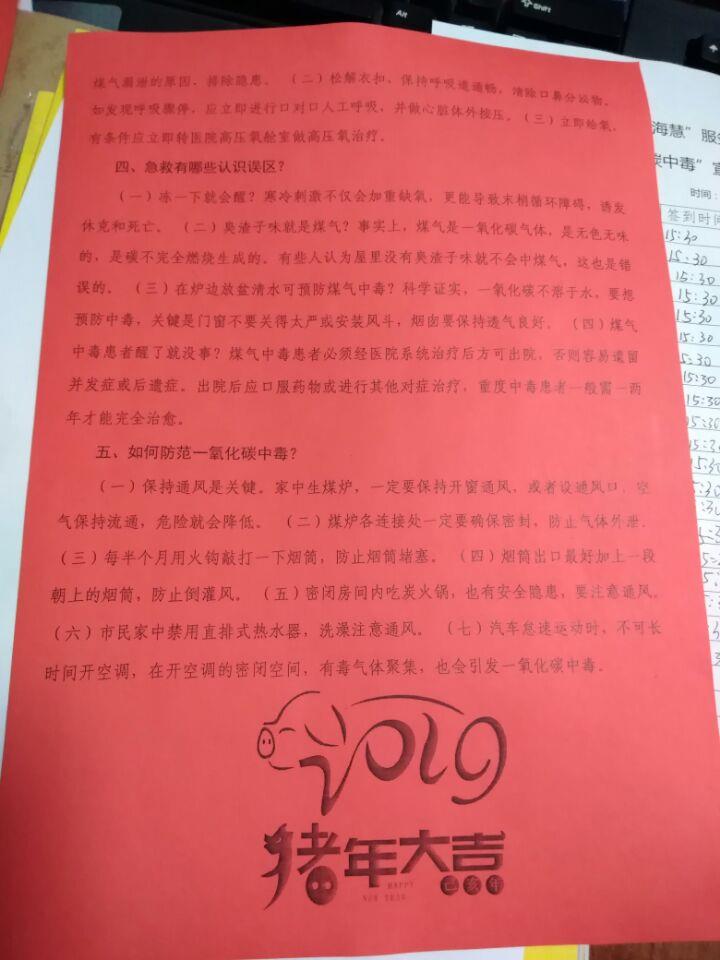 煤气漏泄的原因，排除隐患。（二）松解衣扣，保持呼吸道通畅，清除口鼻分泌物，
如发现呼吸骤停，应立即进行口对口人工呼吸，并做心脏体外按压。（三）立即给氧，
有条件应立即转医院高压氧舱室做高压氧治疗。
四、急救有哪些认识误区？
（一）冻一下就会醒？寒冷刺激不仅会加重缺氧，更能导致末梢循环障碍，诱发
休克和死亡。（二）臭渣子味就是煤气？事实上，煤气是一氧化碳气体，是无色无味
的，是碳不完全燃烧生成的。有些人认为屋里没有臭渣子味就不会中煤气，这也是错
误的。（三）在炉边放盆清水可预防煤气中毒？科学证实，一氧化碳不溶于水，要想
预防中毒，关键是门窗不要关得太严或安装风斗，烟囱要保持透气良好。（四）煤气
中毒患者醒了就没事？煤气中毒患者必须经医院系统治疗后方可出院，否则容易遗留
并发症或后遗症。出院后应口服药物或进行其他对症治疗，重度中毒患者一般需一两
年才能完全治愈。
五、如何防范一氧化碳中毒？
（一）保持通风是关键。家中生煤炉，一定要保持开窗通风，或者设通风口，空
气保持流通，危险就会降低。（二）煤炉各连接处一定要确保密封，防止气体外泄．
（三）每半个月用火钩敲打一下烟筒，防止烟筒堵塞。（四）烟筒出口最好加上一段
朝上的烟筒，防止倒灌风。（五）密闭房间内吃炭火锅，也有安全隐患，要注意通风。
（六）市民家中禁用直排式热水器，洗澡注意通风。（七）汽车怠速运动时，不可长
时间开空调，在开空调的密闭空间，有毒气体聚集，也会引发一氧化碳中毒。
2019
猪年大吉
HAPPY
NEW YEAR
己亥年
海慧”服务
碳中毒”宣
时间：
签到时间
15:30
15:30
15:30
15:30
15:30
15:30
15:30
15:30
15:30
15:30